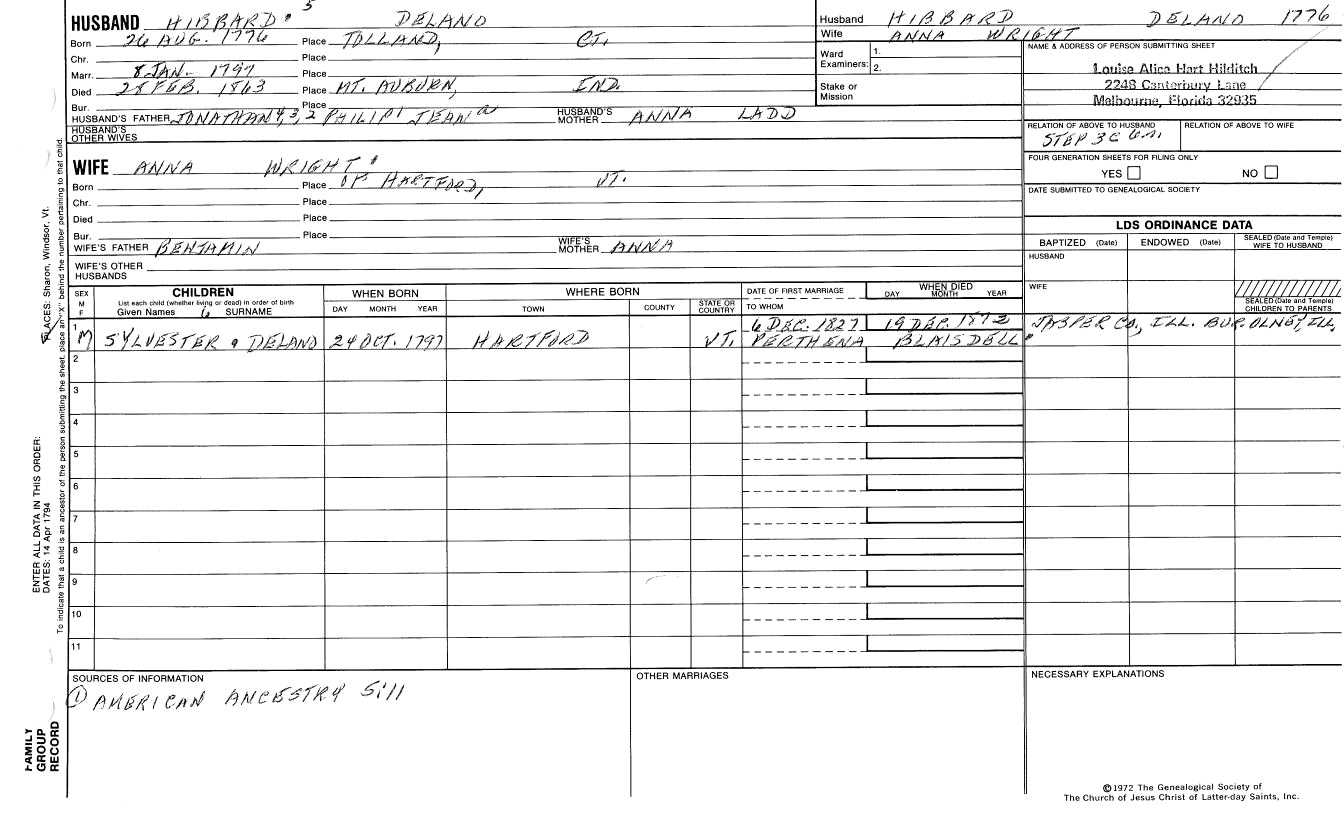 HUSBAND HIBBARD 5 DELANO
Born 26 AUG. 1776 Place TOLLAND, CT.
Chr. Place
Marr. 8 JAN. 1797 Place
Died 28 FEB. 1863 Place MT. AUBURN, IND.
Bur. Place
HUSBAND'S FATHER JONATHAN 4, 3, 2 PHILIP 1 JEAN HUSBAND'S MOTHER ANNA LADD
HUSBAND'S OTHER WIVES
WIFE ANNA WRIGHT
Born Place OF HARTFORD, VT.
Chr. Place
Died Place
Bur. Place
WIFE'S FATHER BENJAMIN WIFE'S MOTHER ANNA
WIFE'S OTHER HUSBANDS
Husband HIBBARD DELANO 1776
Wife ANNA WRIGHT
Ward Examiners: 1. 2.
Stake or Mission
NAME & ADDRESS OF PERSON SUBMITTING SHEET
Louise Alice Hart Hilditch
2248 Canterbury Lane
Melbourne, Florida 32935
RELATION OF ABOVE TO HUSBAND RELATION OF ABOVE TO WIFE
STEP 3C
FOUR GENERATION SHEETS FOR FILING ONLY
YES NO
DATE SUBMITTED TO GENEALOGICAL SOCIETY
LDS ORDINANCE DATA
BAPTIZED (Date) ENDOWED (Date) SEALED (Date and Temple) WIFE TO HUSBAND
HUSBAND
WIFE
SEALED (Date and Temple) CHILDREN TO PARENTS
SEX M F CHILDREN WHEN BORN WHERE BORN DATE OF FIRST MARRIAGE WHEN DIED
List each child (whether living or dead) in order of birth
Given Names SURNAME DAY MONTH YEAR TOWN COUNTY STATE OR COUNTRY TO WHOM DAY MONTH YEAR
1 6 DEC. 1827 19 JASPER CO., ILL. BUR. OLNEY, ILL.
M SYLVESTER 6 DELANO 24 OCT. 1797 HARTFORD VT. PERTHENA BLAISDELL
2
3
4
5
6
7
8
9
10
11
SOURCES OF INFORMATION OTHER MARRIAGES NECESSARY EXPLANATIONS
① AMERICAN ANCESTRY 5:11
©1972 The Genealogical Society of
The Church of Jesus Christ of Latter-day Saints, Inc.
PLACES: Sharon, Windsor, Vt.
ENTER ALL DATA IN THIS ORDER:
DATES: 14 Apr 1794
To indicate that a child is an ancestor of the person submitting the sheet, place an "X" behind the number pertaining to that child.
FAMILY
GROUP
RECORD